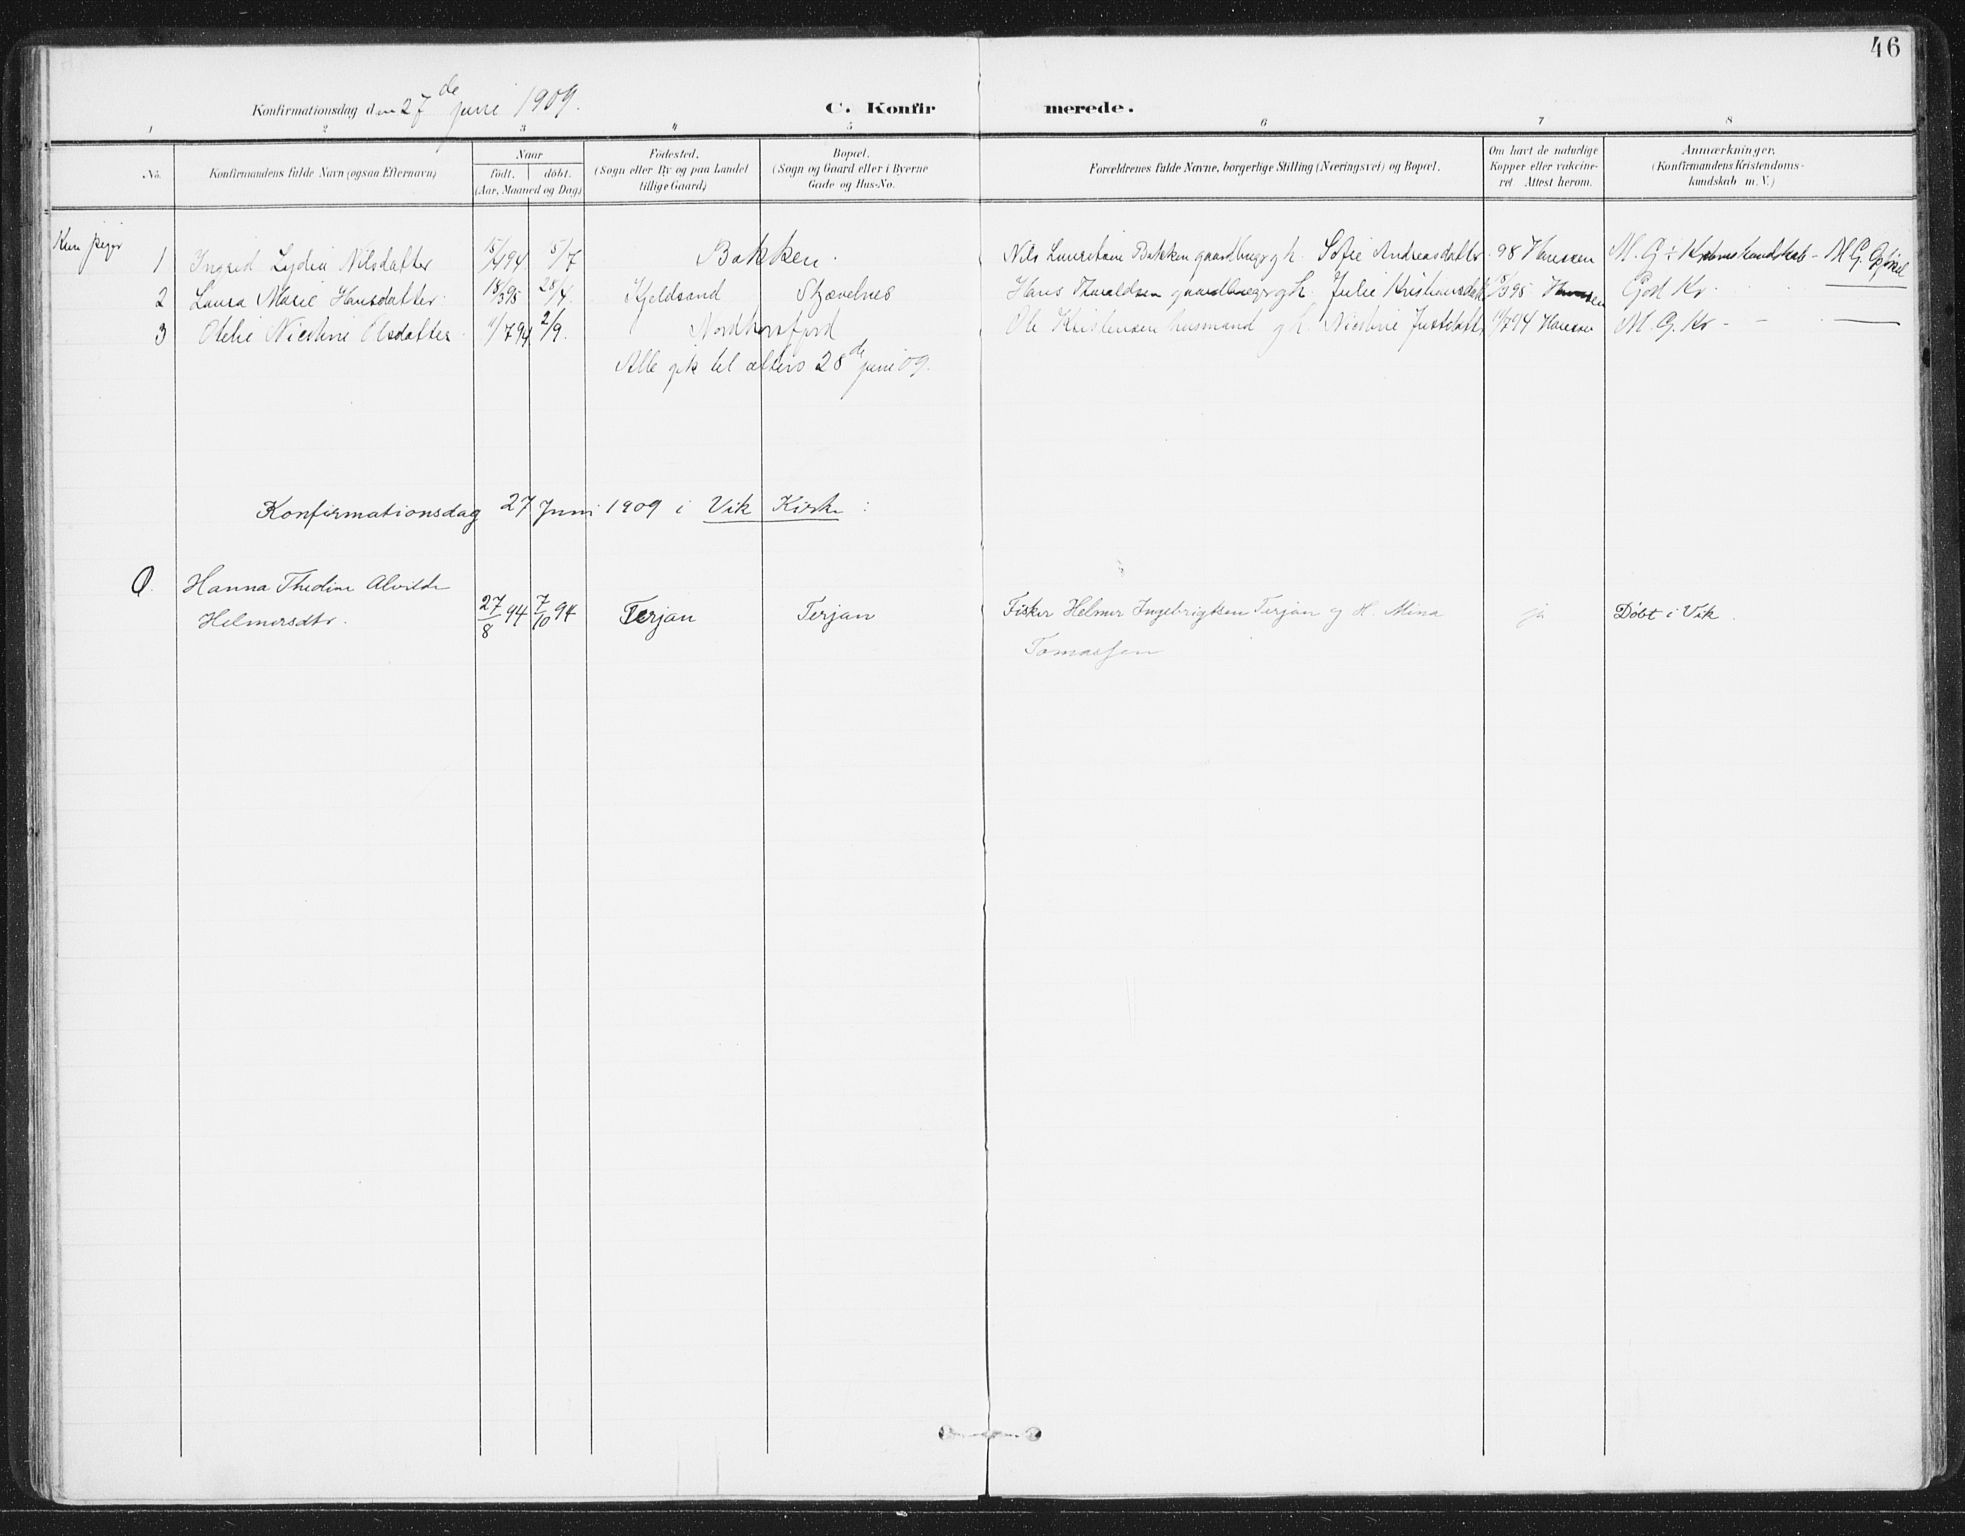 46
Konfirmationsdag den 27de juni 1909.
C. Konfirmerede.
1 2 3 4 5 6 7 8
No. Konfirmandens fulde Navn (ogsaa Efternavn) Naar født. døbt. (Aar, Maaned og Dag) Fødested. (Sogn eller By og paa Landet tillige Gaard) Bopæl. (Sogn og Gaard eller i Byerne Gade og Hus-No. Forældrenes fulde Navne, borgerlige Stilling (Næringsvei) og Bopæl. Om havt de naturlige Kopper eller vakcineret Attest herom. Anmærkninger. (Konfirmandens Kristendomskundskab m. V.)
Kun piger
1 Ingrid Lydia Nilsdatter 94 5/7 Bakken. Nils Bakken gaardbruger g h. Sofie Andreasdatter 98 Hanssen M. G. Kr kundskab - M G
2 Laura Marie Hansdatter 18/3 95 28/4 Kjeldsand Skjævelnes Hans gaardbruger g h. Julie 95 God Kr.
3 Otelie Olsdatter 1/7 94 2/9. Ole Kristensen husmand g h. 1/7 94 Hanssen M. G. Kr - -
Alle gik til alters 28de juni 09.
Konfirmationsdag 27 Juni 1909 i Vik Kirke:
Hanna Thedine Alvilde
Helmersdtr. 27/8 94 7/10 94 Terjan Terjan Fisker Helmer Ingebrigtsen Terjan og H. Mina ja Døbt i Vik.
Tomassen